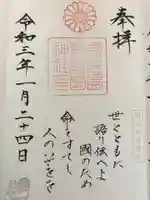 奉拝
世とともに
語り伝へよ
國のため
命をすてし
人のいさをを
令和三年一月二十四日